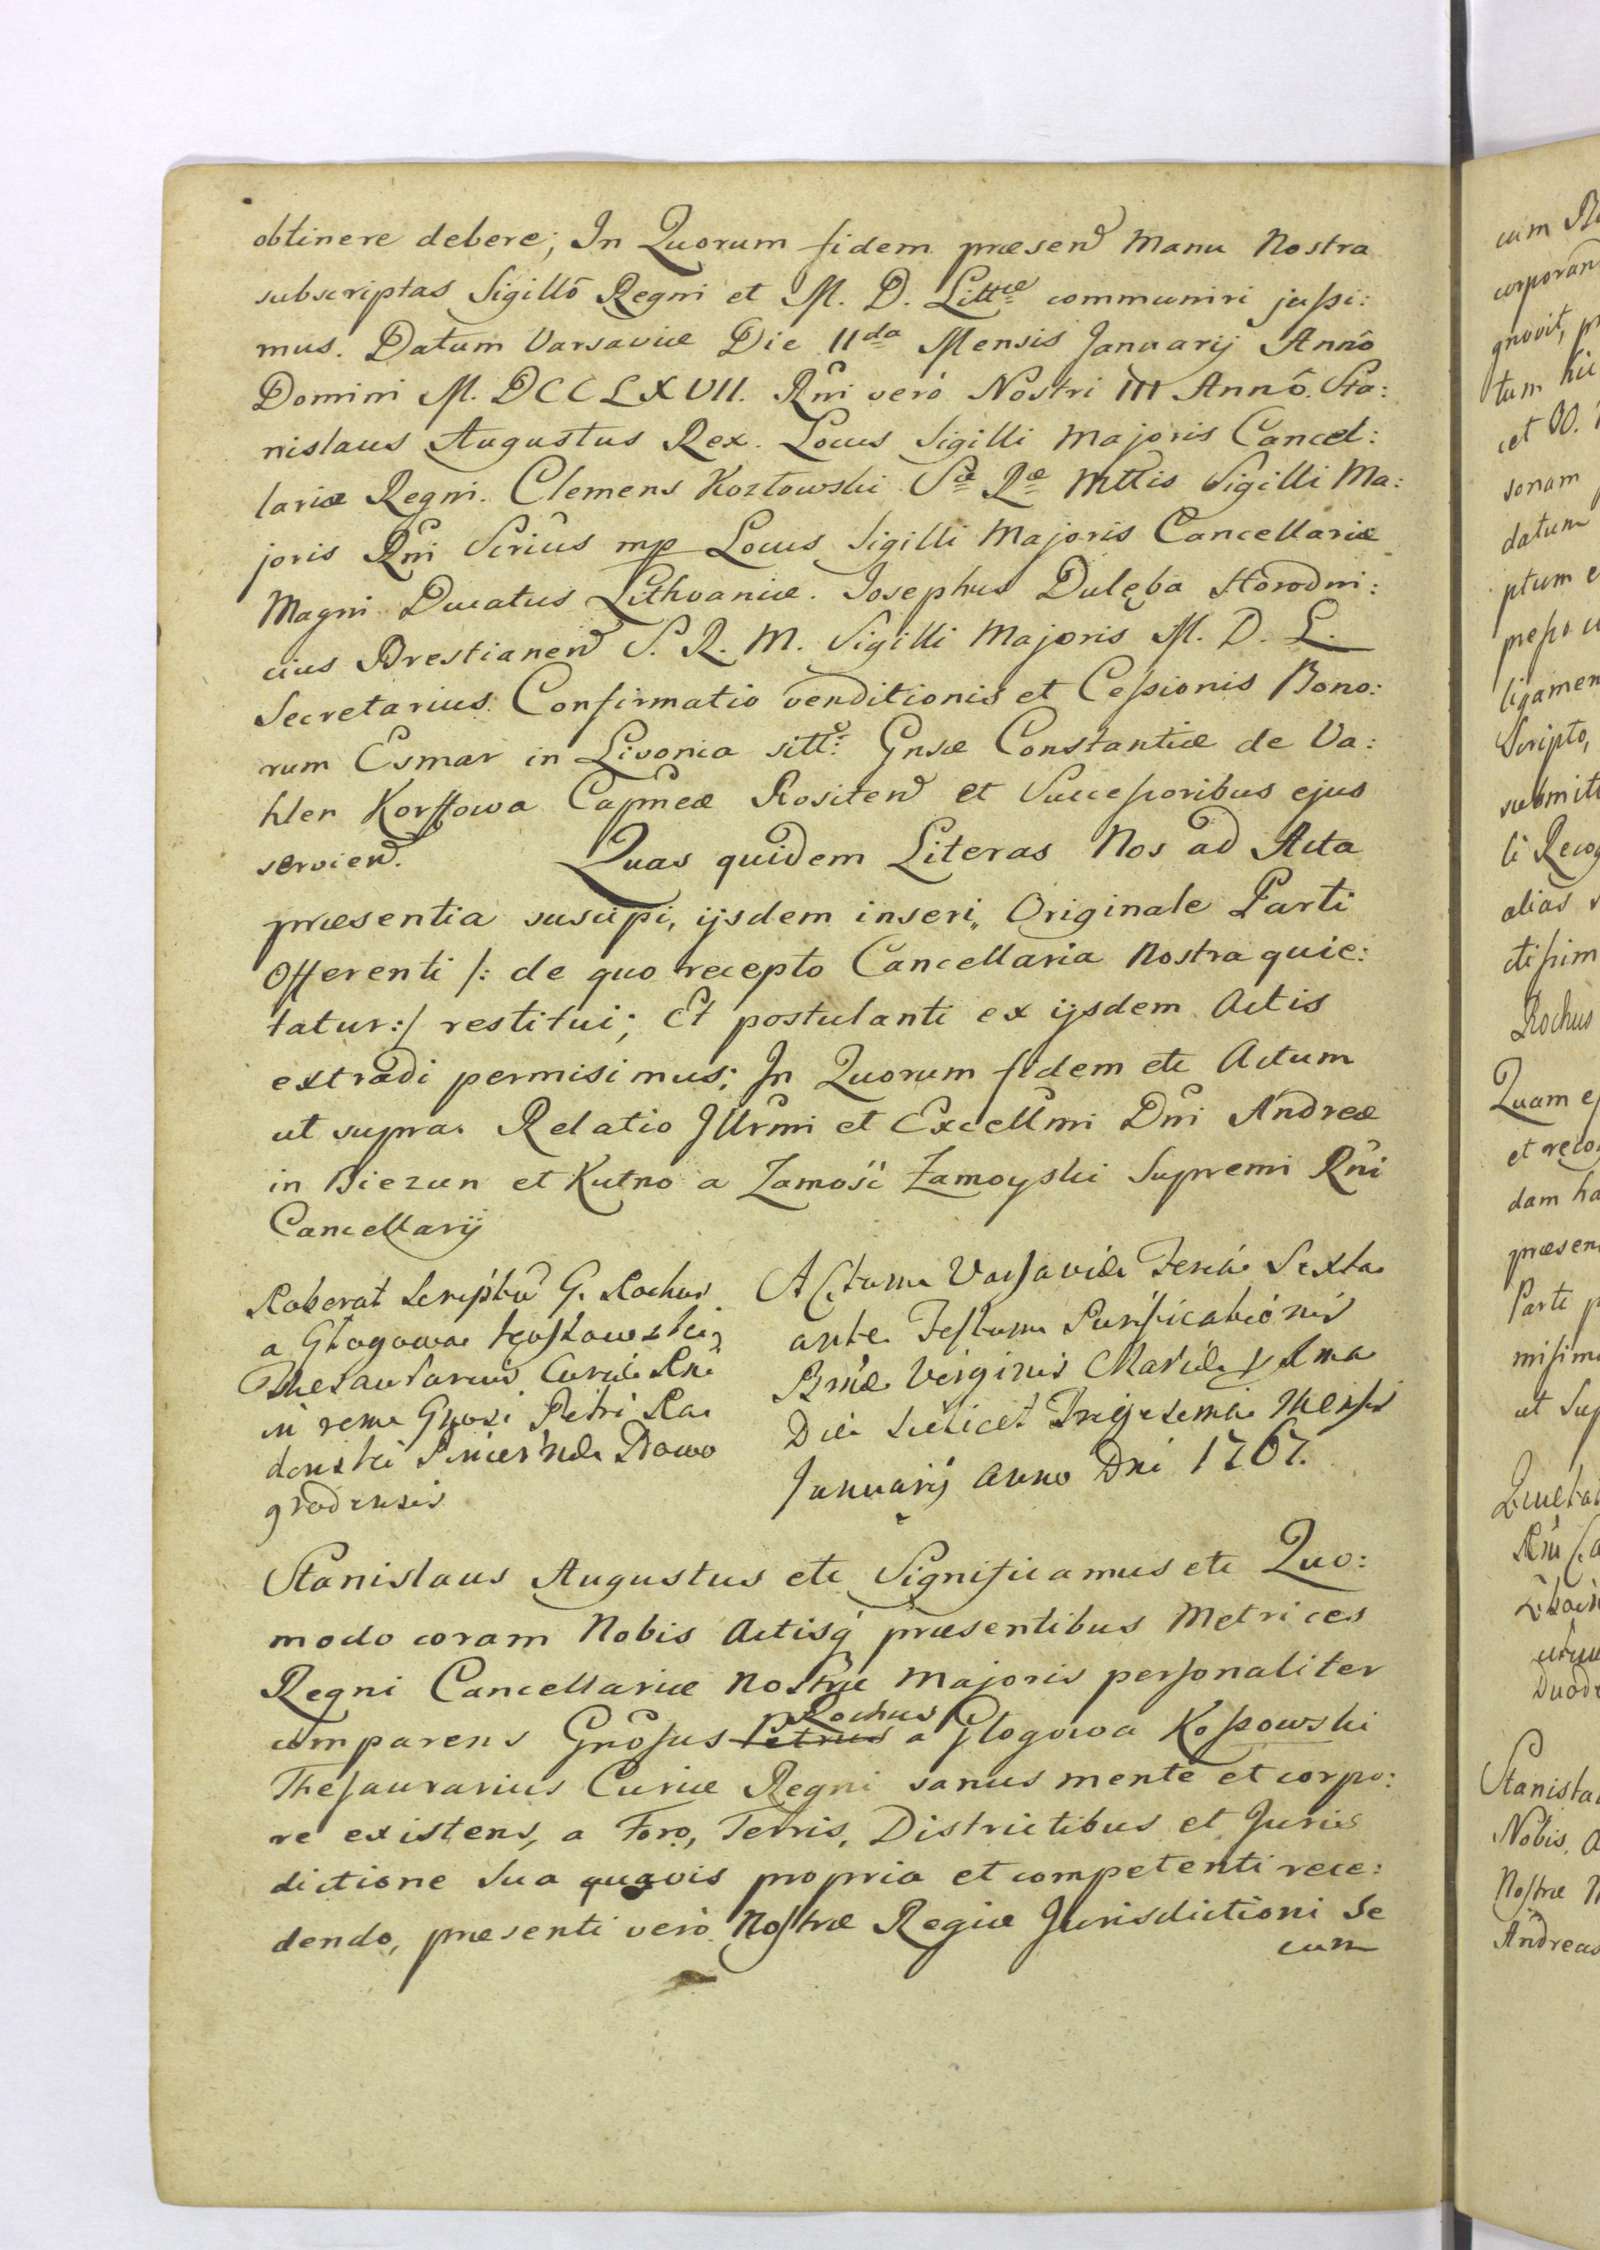 obtinere debere; In Quorum fidem præsen͠d Manu Nostra
subscriptas Sigillô Regni et M. D. Littæ communiri jussi:
mus. Datum Varsaviæ Die 11da Mensis Januarij Annô
Domini M. DCCLXVII. Rni͠ verò Nostri III Annô. Sta:
nislaus Augustus Rex. Locus Sigilli Majoris Cancel:
lariæ Regni. Clemens Kozłowski Sæ Ræ Mttis Sigilli Ma:
joris Rni͠ Scrius͠ mp Locus Sigilli Majoris Cancellariæ
Magni Ducatus Lithvaniæ. Josephus Dulęba Horodni:
cius Brestianen͠ S. R. M. Sigilli Majoris M. D. L.
Secretarius. Confirmatio venditionis et Cessionis Bono:
rum Esmar in Livonia sitt: Gnsæ Constantiæ de Va:
hlen Korffowa Capneæ Rositen͠ et Successoribus ejus
servien͠d. Quas quidem Literas Nos ad Acta
præsentia suscipi, ijsdem inseri, Originale Parti
Offerenti /: de quo recepto Cancellaria Nostra quie:
tatur :/ restitui; Et postulanti ex ijsdem Actis
extradi permisimus; In Quorum fidem etc Actum
ut supra. Relatio Illrmi͠ et Excellmi͠ Dni͠ Andreæ
in Biezun et Kutno a Zamość Zamoyski Supremi Rni͠
Cancellarij
Roberat Scriptu͠ G. Rochus
a Głogowa Kossowski,
Thesaurarius Curiæ Rni͠
in rem Gnosi Petri Ra
donski Pincernæ Nowo
grodensis
Actum Varsaviæ Feria Sexta
ante Festum Purificationis
Bmæ Virginis Mariæ
Die Scilicet Trigesima Mensis
Januarij Anno Dni 1767.
Stanislaus Augustus etc Significamus etc Quo:
modo coram Nobis Actisq́ præsentibus Metrices
Regni Cancellariæ Nostræ Majoris personaliter
comparens Gnosus͠ Petrus Rochus a Głogowa Kossowski
Thesaurarius Curiæ Regni sanus mente et corpo:
re existens, a Foro, Terris, Districtibus et Juris
dictione Sua quavis propria et competenti rece:
dendo, præsenti verò Nostræ Regiæ Jurisdictioni Se
cum